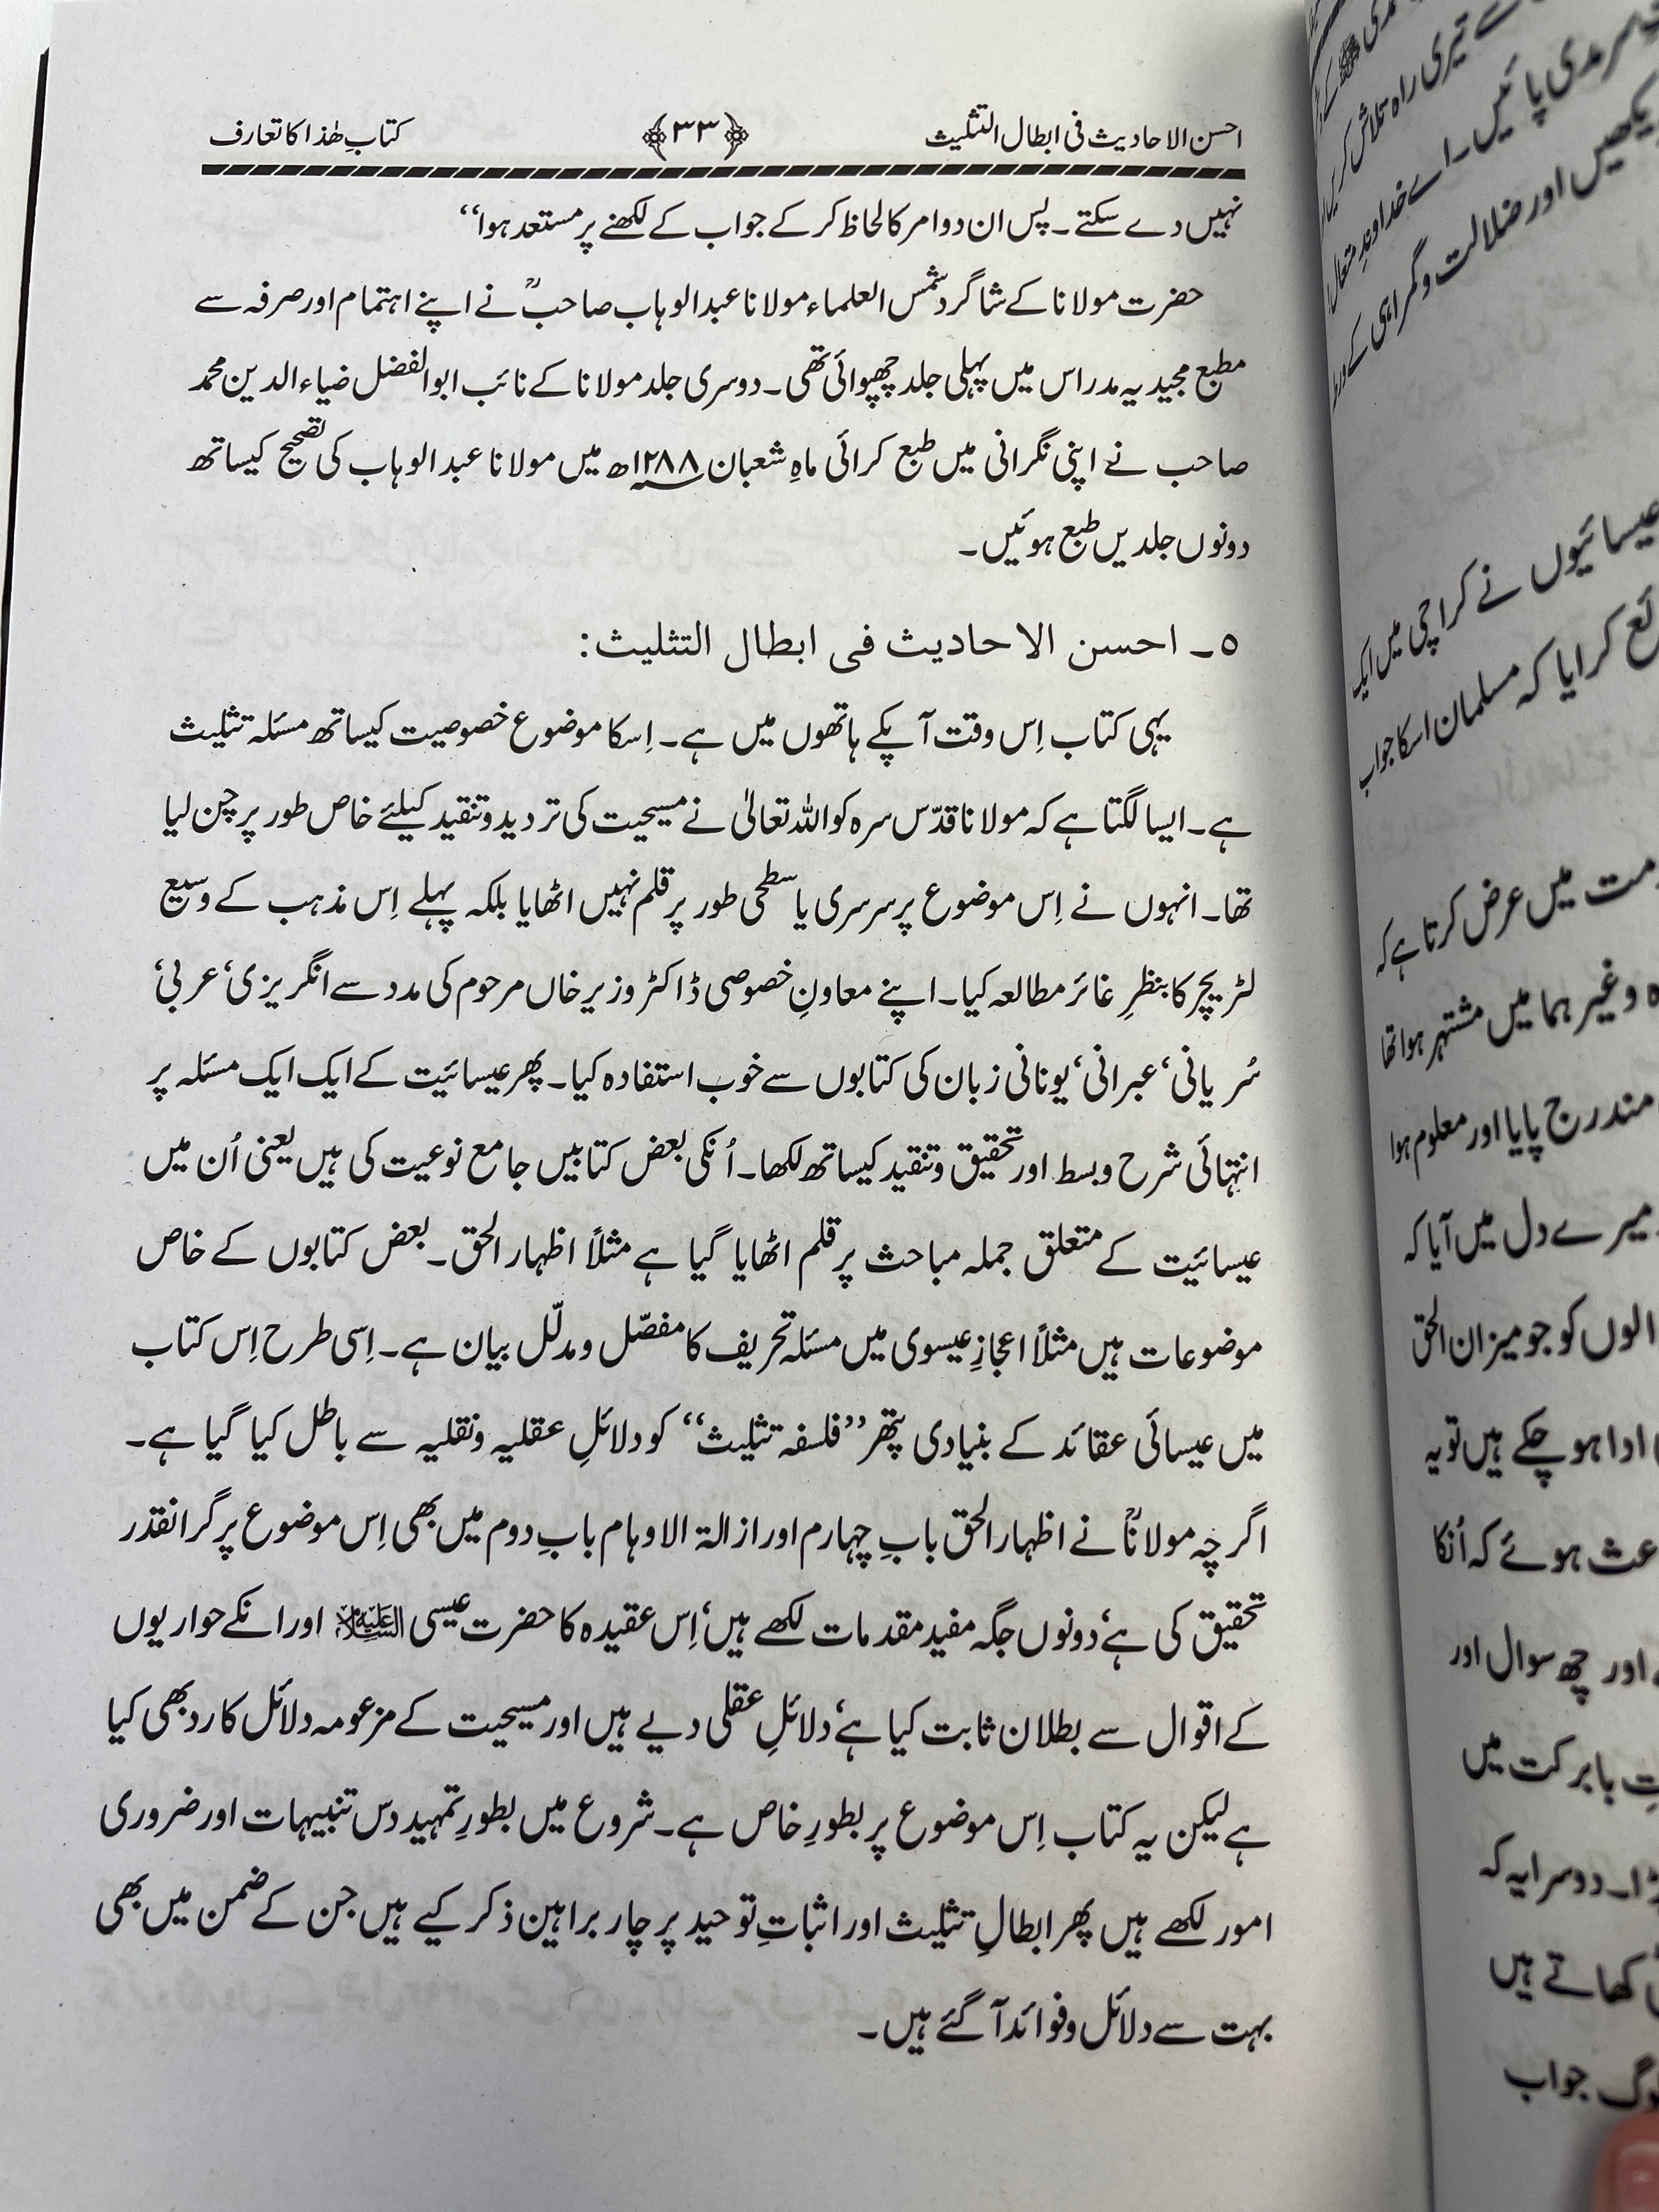 احسن الاحادیث فی ابطال التثلیث ﴿۳۳﴾ کتابِ ھٰذا کا تعارف
نہیں دے سکتے۔ پس ان دو امر کا لحاظ کر کے جواب کے لکھنے پر مستعد ہوا‘‘
حضرت مولانا کے شاگرد شمس العلماء مولانا عبدالوہاب صاحبؒ نے اپنے اہتمام اور صرفہ سے
مطبع مجیدیہ مدراس میں پہلی جلد چھپوائی تھی۔ دوسری جلد مولانا کے نائب ابوالفضل ضیاء الدین محمد
صاحب نے اپنی نگرانی میں طبع کرائی ماہِ شعبان ۱۲۸۸ھ میں مولانا عبدالوہاب کی تصحیح کیساتھ
دونوں جلدیں طبع ہوئیں۔
۵۔ احسن الاحادیث فی ابطال التثلیث:
یہی کتاب اِس وقت آپکے ہاتھوں میں ہے۔ اِسکا موضوع خصوصیت کیساتھ مسئلہ تثلیث
ہے۔ ایسا لگتا ہے کہ مولانا قدّس سرہ کو اللہ تعالیٰ نے مسیحیت کی تردید و تنقید کیلئے خاص طور پر چن لیا
تھا۔ انہوں نے اِس موضوع پر سرسری یا سطحی طور پر قلم نہیں اٹھایا بلکہ پہلے اِس مذہب کے وسیع
لٹریچر کا بنظرِ غائر مطالعہ کیا۔ اپنے معاونِ خصوصی ڈاکٹر وزیر خاں مرحوم کی مدد سے انگریزی‘ عربی‘
سُریانی‘ عبرانی‘ یونانی زبان کی کتابوں سے خوب استفادہ کیا۔ پھر عیسائیت کے ایک ایک مسئلہ پر
انتہائی شرح و بسط اور تحقیق و تنقید کیساتھ لکھا۔ اُنکی بعض کتابیں جامع نوعیت کی ہیں یعنی اُن میں
عیسائیت کے متعلق جملہ مباحث پر قلم اٹھایا گیا ہے مثلاً اظہار الحق۔ بعض کتابوں کے خاص
موضوعات ہیں مثلاً اعجازِ عیسوی میں مسئلہ تحریف کا مفصّل و مدلّل بیان ہے۔ اِسی طرح اِس کتاب
میں عیسائی عقائد کے بنیادی پتھر ’’فلسفہ تثلیث‘‘ کو دلائلِ عقلیہ و نقلیہ سے باطل کیا گیا ہے۔
اگرچہ مولاناؒ نے اظہار الحق بابِ چہارم اور ازالۃ الاوہام بابِ دوم میں بھی اِس موضوع پر گرانقدر
تحقیق کی ہے‘ دونوں جگہ مفید مقدمات لکھے ہیں‘ اِس عقیدہ کا حضرت عیسی علیہ السلام اور انکے حواریوں
کے اقوال سے بطلان ثابت کیا ہے‘ دلائلِ عقلی دیے ہیں اور مسیحیت کے مزعومہ دلائل کا رد بھی کیا
ہے لیکن یہ کتاب اِس موضوع پر بطورِ خاص ہے۔ شروع میں بطورِ تمہید دس تنبیہات اور ضروری
امور لکھے ہیں پھر ابطالِ تثلیث اور اثباتِ توحید پر چار براہین ذکر کیے ہیں جن کے ضمن میں بھی
بہت سے دلائل و فوائد آ گئے ہیں۔
تیری راہ تلاش کریں
سرمدی پائیں۔ اے خداوندِ متعال
دیکھیں اور ضلالت و گمراہی کے
عیسائیوں نے کراچی میں ایک
کرایا کہ مسلمان اسکا جواب
میں عرض کرتا ہے کہ
وغیرہما میں مشتہر ہوا تھا
مندرج پایا اور معلوم ہوا
میرے دل میں آیا کہ
والوں کو جو میزان الحق
ادا ہو چکے ہیں تو یہ
ہوئے کہ اُنکا
اور چھ سوال اور
بابرکت میں
دوسرا یہ کہ
کھاتے ہیں
جواب